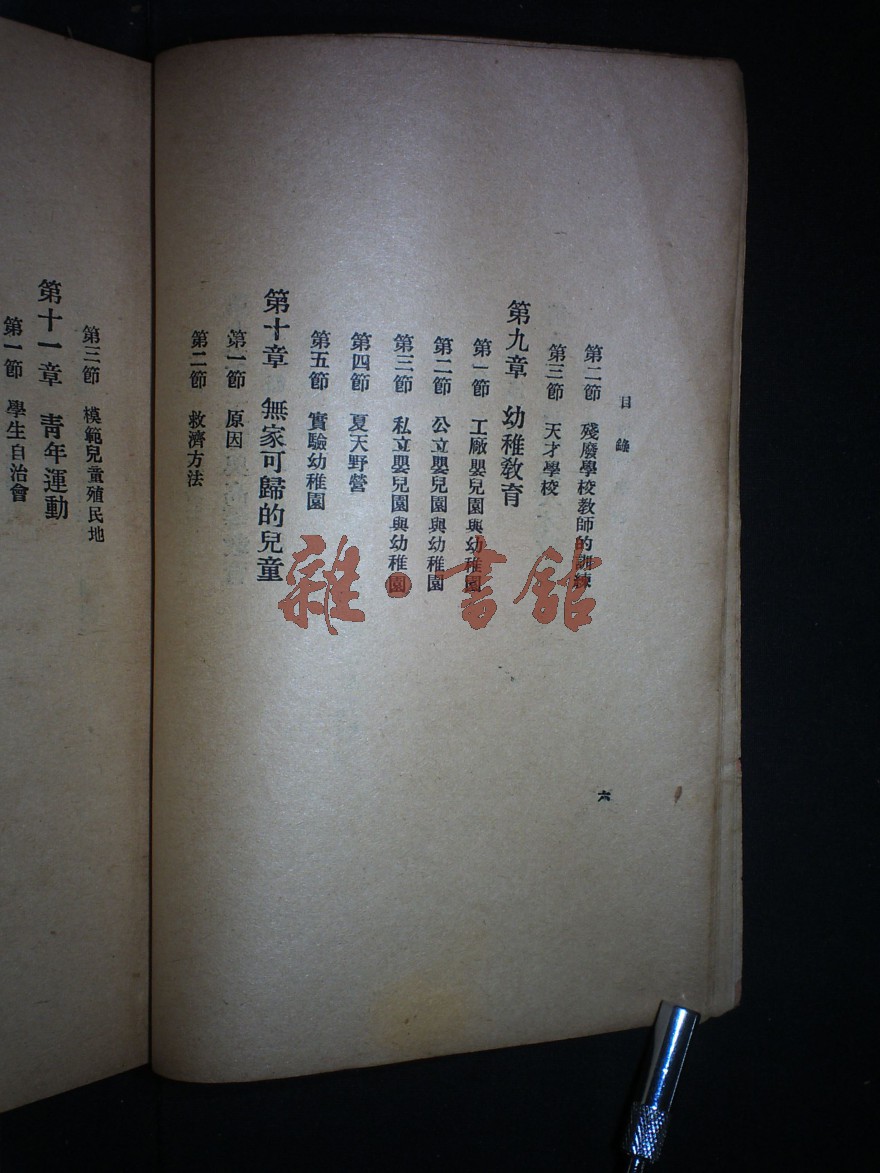 目錄
第二節　殘廢學校教師的訓練
第三節　天才學校
第九章　幼稚教育
第一節　工廠嬰兒園與幼稚園
第二節　公立嬰兒園與幼稚園
第三節　私立嬰兒園與幼稚園
第四節　夏天野營
第五節　實驗幼稚園
第十章　無家可歸的兒童
第一節　原因
第二節　救濟方法
六
第三節　模範兒童殖民地
第十一章　青年運動
第一節　學生自治會
雜·書館